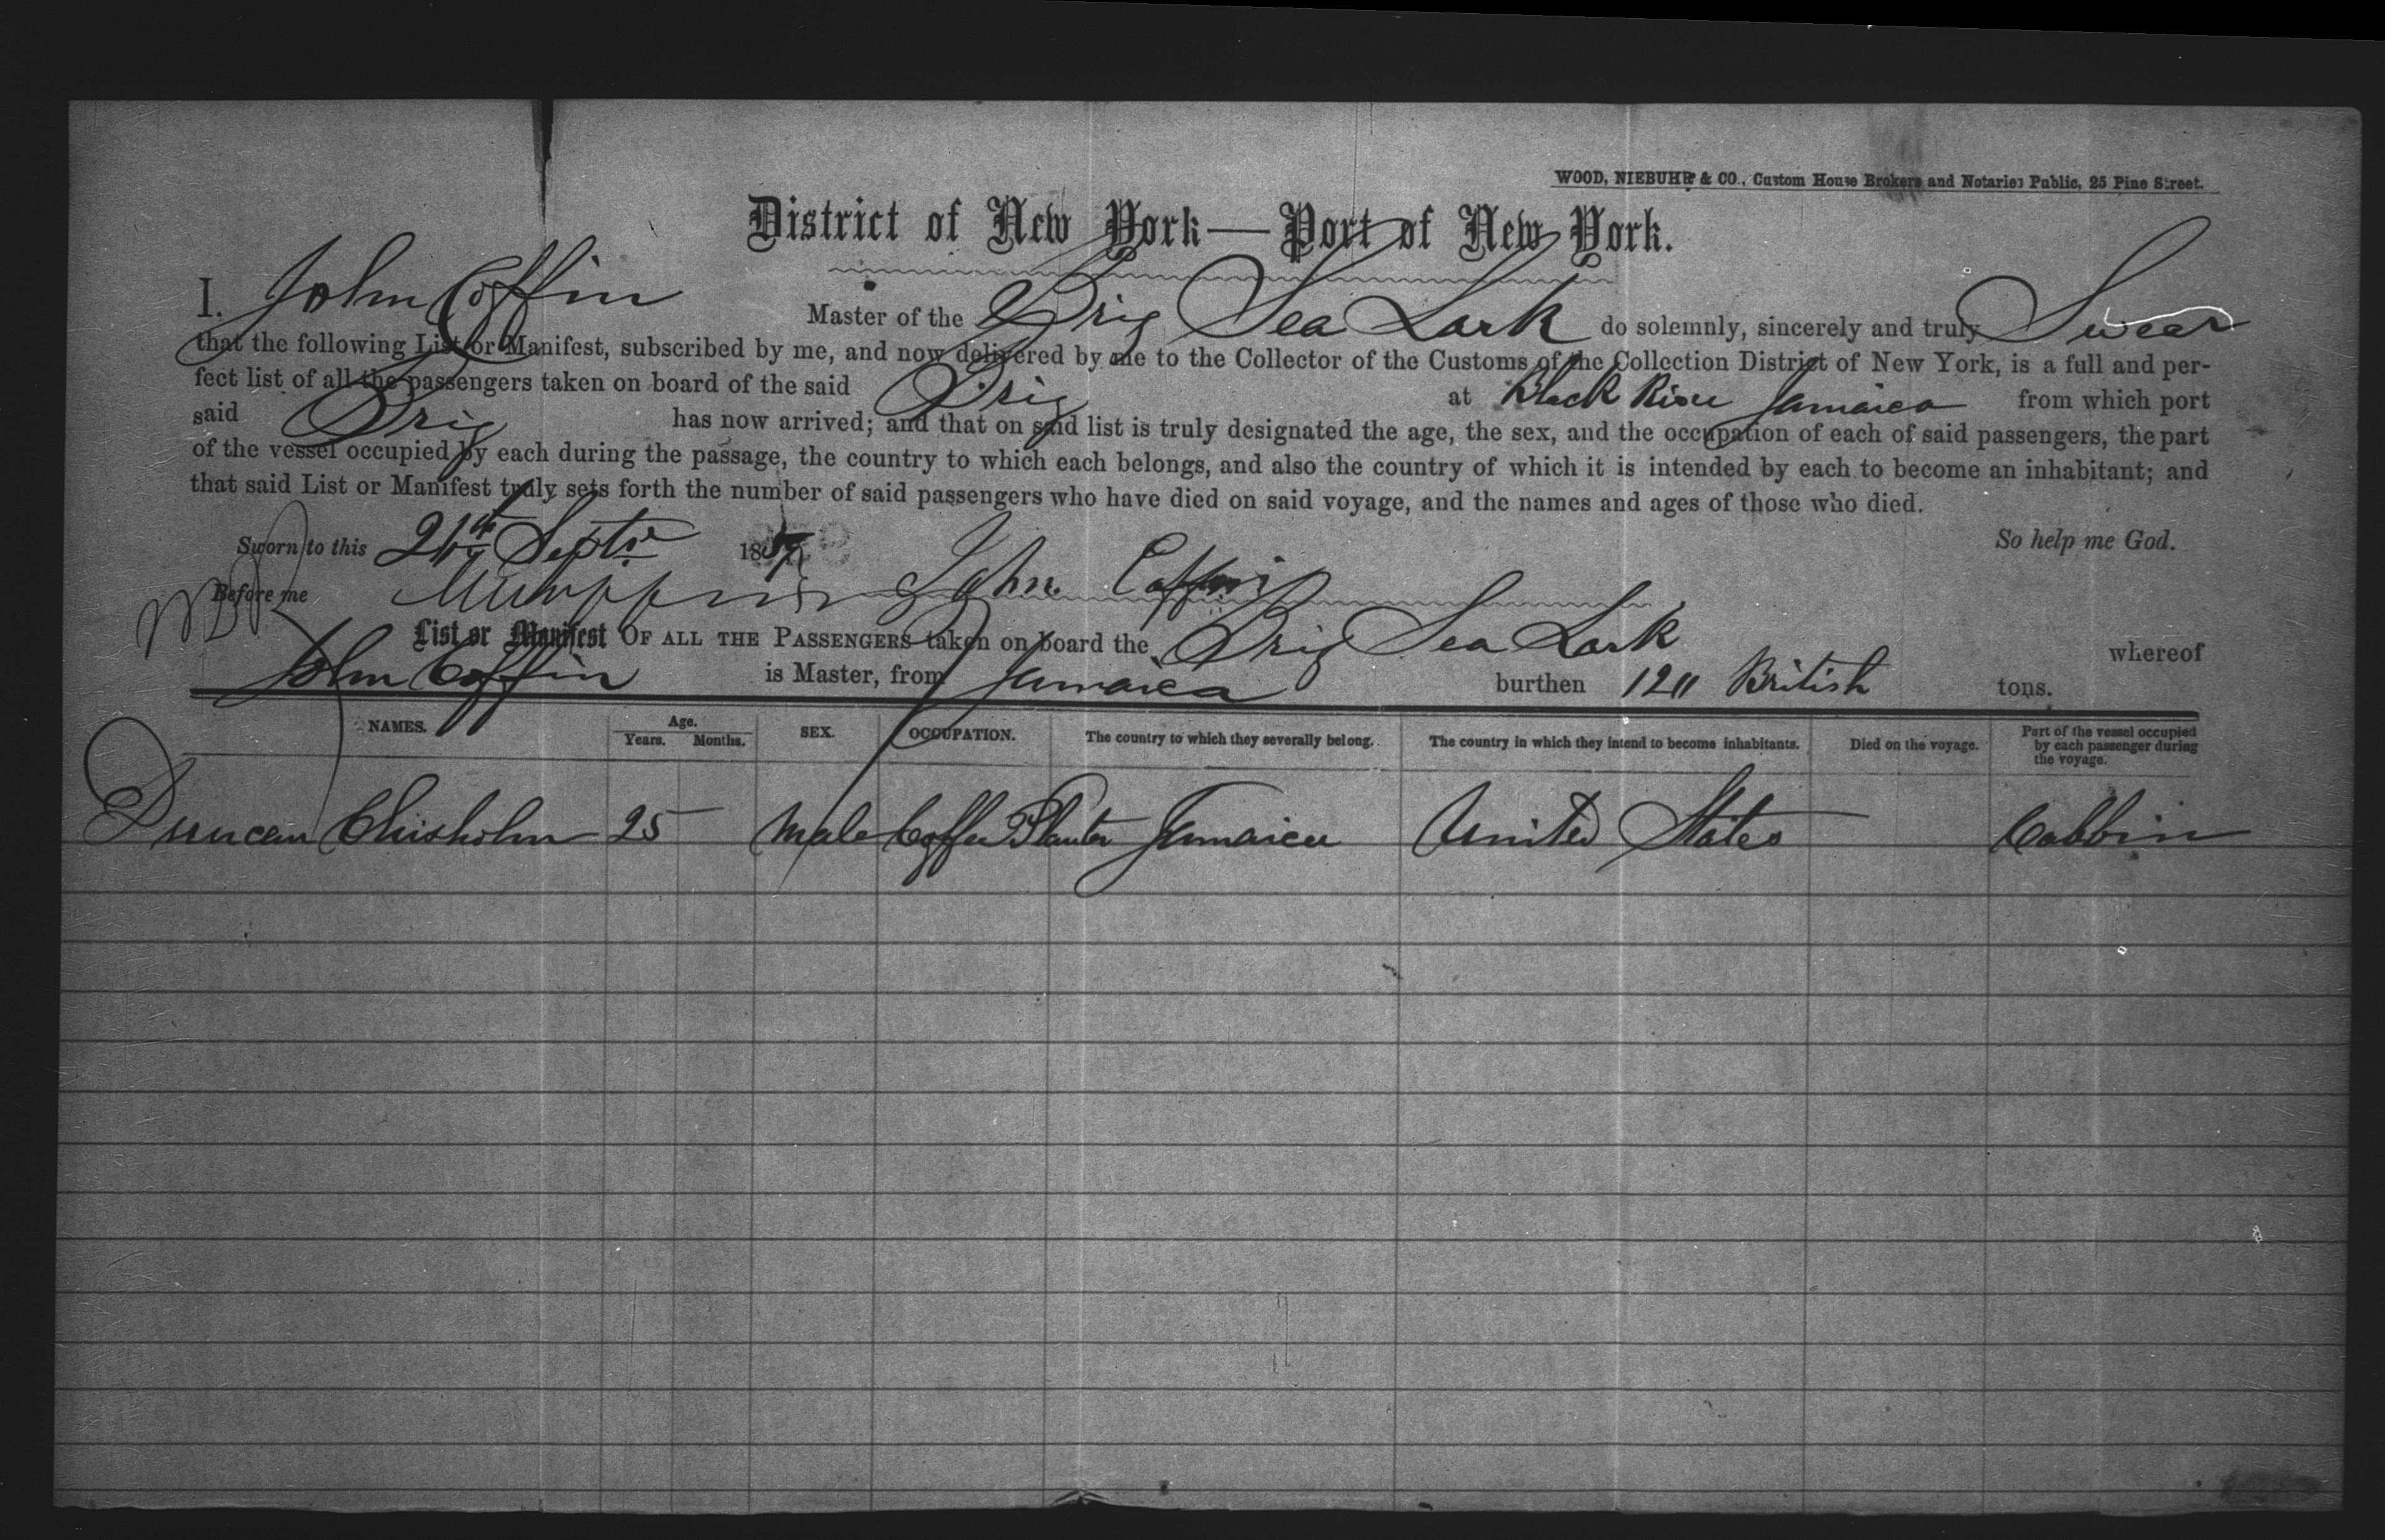 WOOD, NIEBUHR & CO., Custom House Brokers and Notaries Public, 25 Pine Street.
District of New York—Port of New York.
I. John Coffin Master of the Brig Sea Lark do solemnly, sincerely and truly Swear
that the following List or Manifest, subscribed by me, and now delivered by me to the Collector of the Customs of the Collection District of New York, is a full and per-
fect list of all the passengers taken on board of the said Brig at Black River Jamaica from which port
said Brig has now arrived; and that on said list is truly designated the age, the sex, and the occupation of each of said passengers, the part
of the vessel occupied by each during the passage, the country to which each belongs, and also the country of which it is intended by each to become an inhabitant; and
that said List or Manifest truly sets forth the number of said passengers who have died on said voyage, and the names and ages of those who died.
Sworn to this Septr 18 So help me God.
Before me John Coffin
List or Manifest OF ALL THE PASSENGERS taken on board the Brig Sea Lark whereof
John Coffin is Master, from Jamaica burthen British tons.
NAMES. Age. Years. Months. SEX. OCCUPATION. The country to which they severally belong. The country in which they intend to become inhabitants. Died on the voyage. Part of the vessel occupied by each passenger during the voyage.
Duncan Chisholm 25 Male Coffee Planter Jamaica United States Cabbin